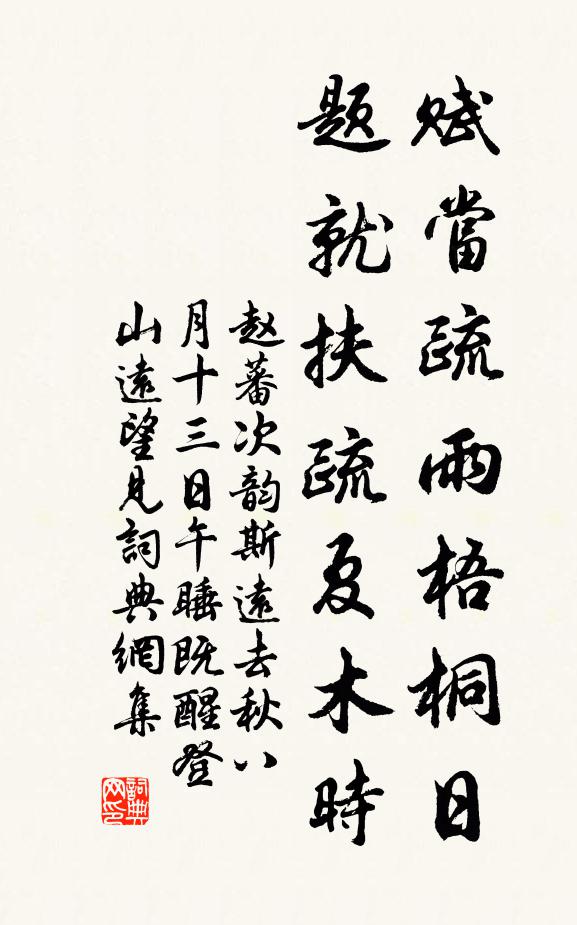 赋當疏雨梧桐日
题就扶疏夏木時
赵蕃次韵斯遠去秋八
月十三日午睡既醒登
山遠望見詞典網集
詞典网印